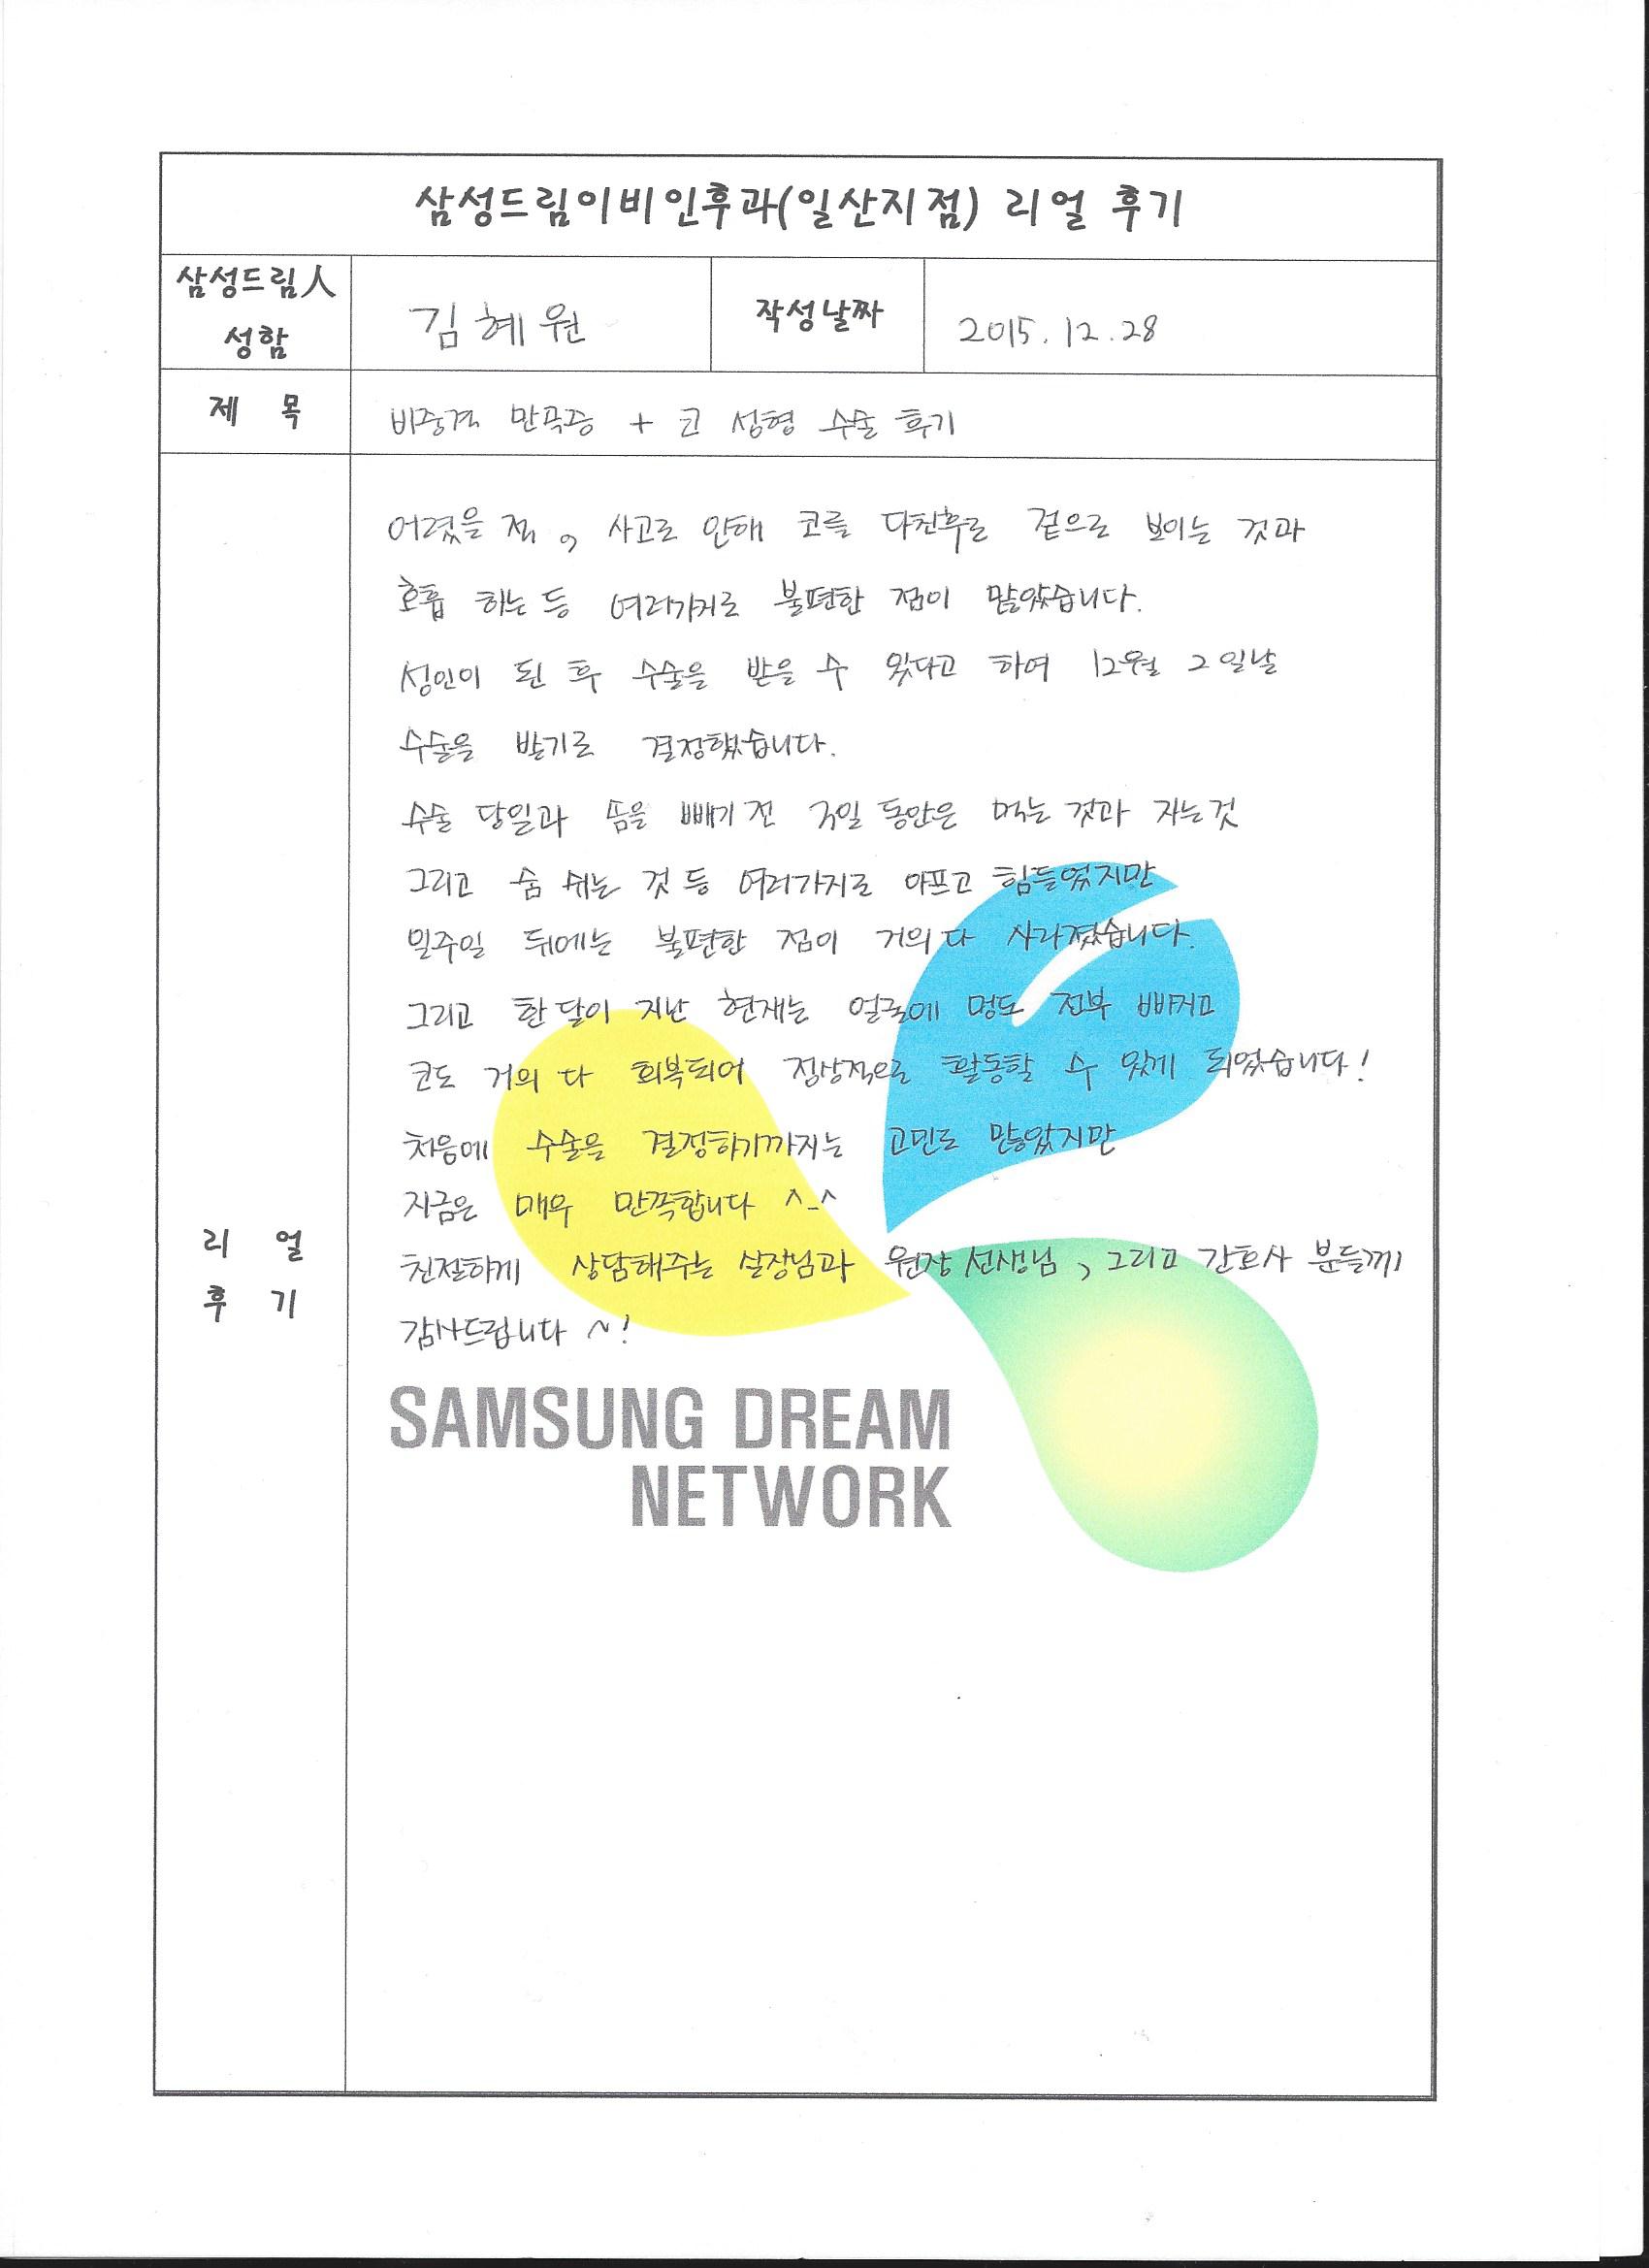 삼성드림이비인후과(일산지점) 리얼 후기
삼성드림人
성함
김혜원
작성날짜
2015. 12. 28
제 목
비중격 만곡증 + 코 성형 수술 후기
어렸을 적, 사고로 인해 코를 다친후로 겉으로 보이는 것과
호흡 하는 등 여러가지로 불편한 점이 많았습니다.
성인이 된 후 수술을 받을 수 있다고 하여 12월 2일날
수술을 받기로 결정했습니다.
수술 당일과 솜을 빼기 전 3일 동안은 먹는 것과 자는것
그리고 숨 쉬는 것 등 여러가지로 아프고 힘들었지만
일주일 뒤에는 불편한 점이 거의 다 사라졌습니다.
그리고 한 달이 지난 현재는 얼굴에 멍도 전부 빠지고
코도 거의 다 회복되어 정상적으로 활동할 수 있게 되었습니다!
처음에 수술을 결정하기까지는 고민도 많았지만
지금은 매우 만족합니다 ^-^
친절하게 상담해주는 실장님과 원장 선생님, 그리고 간호사 분들께
감사드립니다 ~!
리 얼
후 기
SAMSUNG DREAM
NETWORK